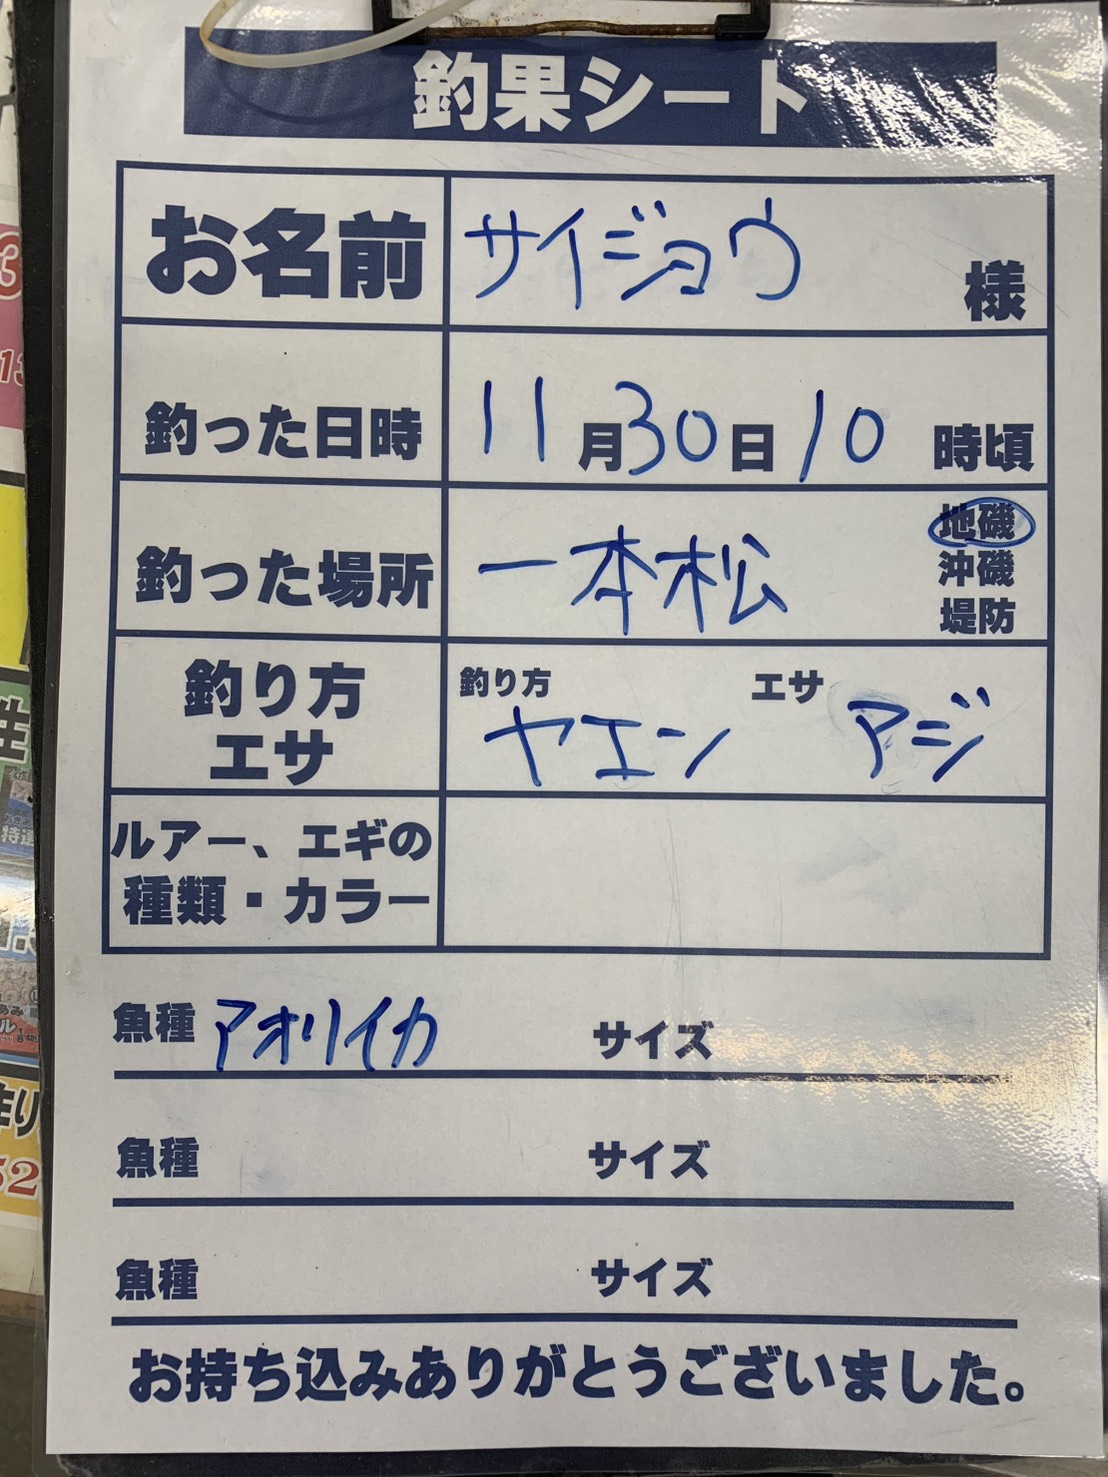 釣果シート
お名前 サイジョウ 様
釣った日時 11月30日10時頃
釣った場所 一本松 地磯
沖磯
堤防
釣り方 エサ
釣り方 ヤエン エサ アジ
ルアー、エギの
種類・カラー
魚種 アオリイカ サイズ
魚種 サイズ
魚種 サイズ
お持ち込みありがとうございました。